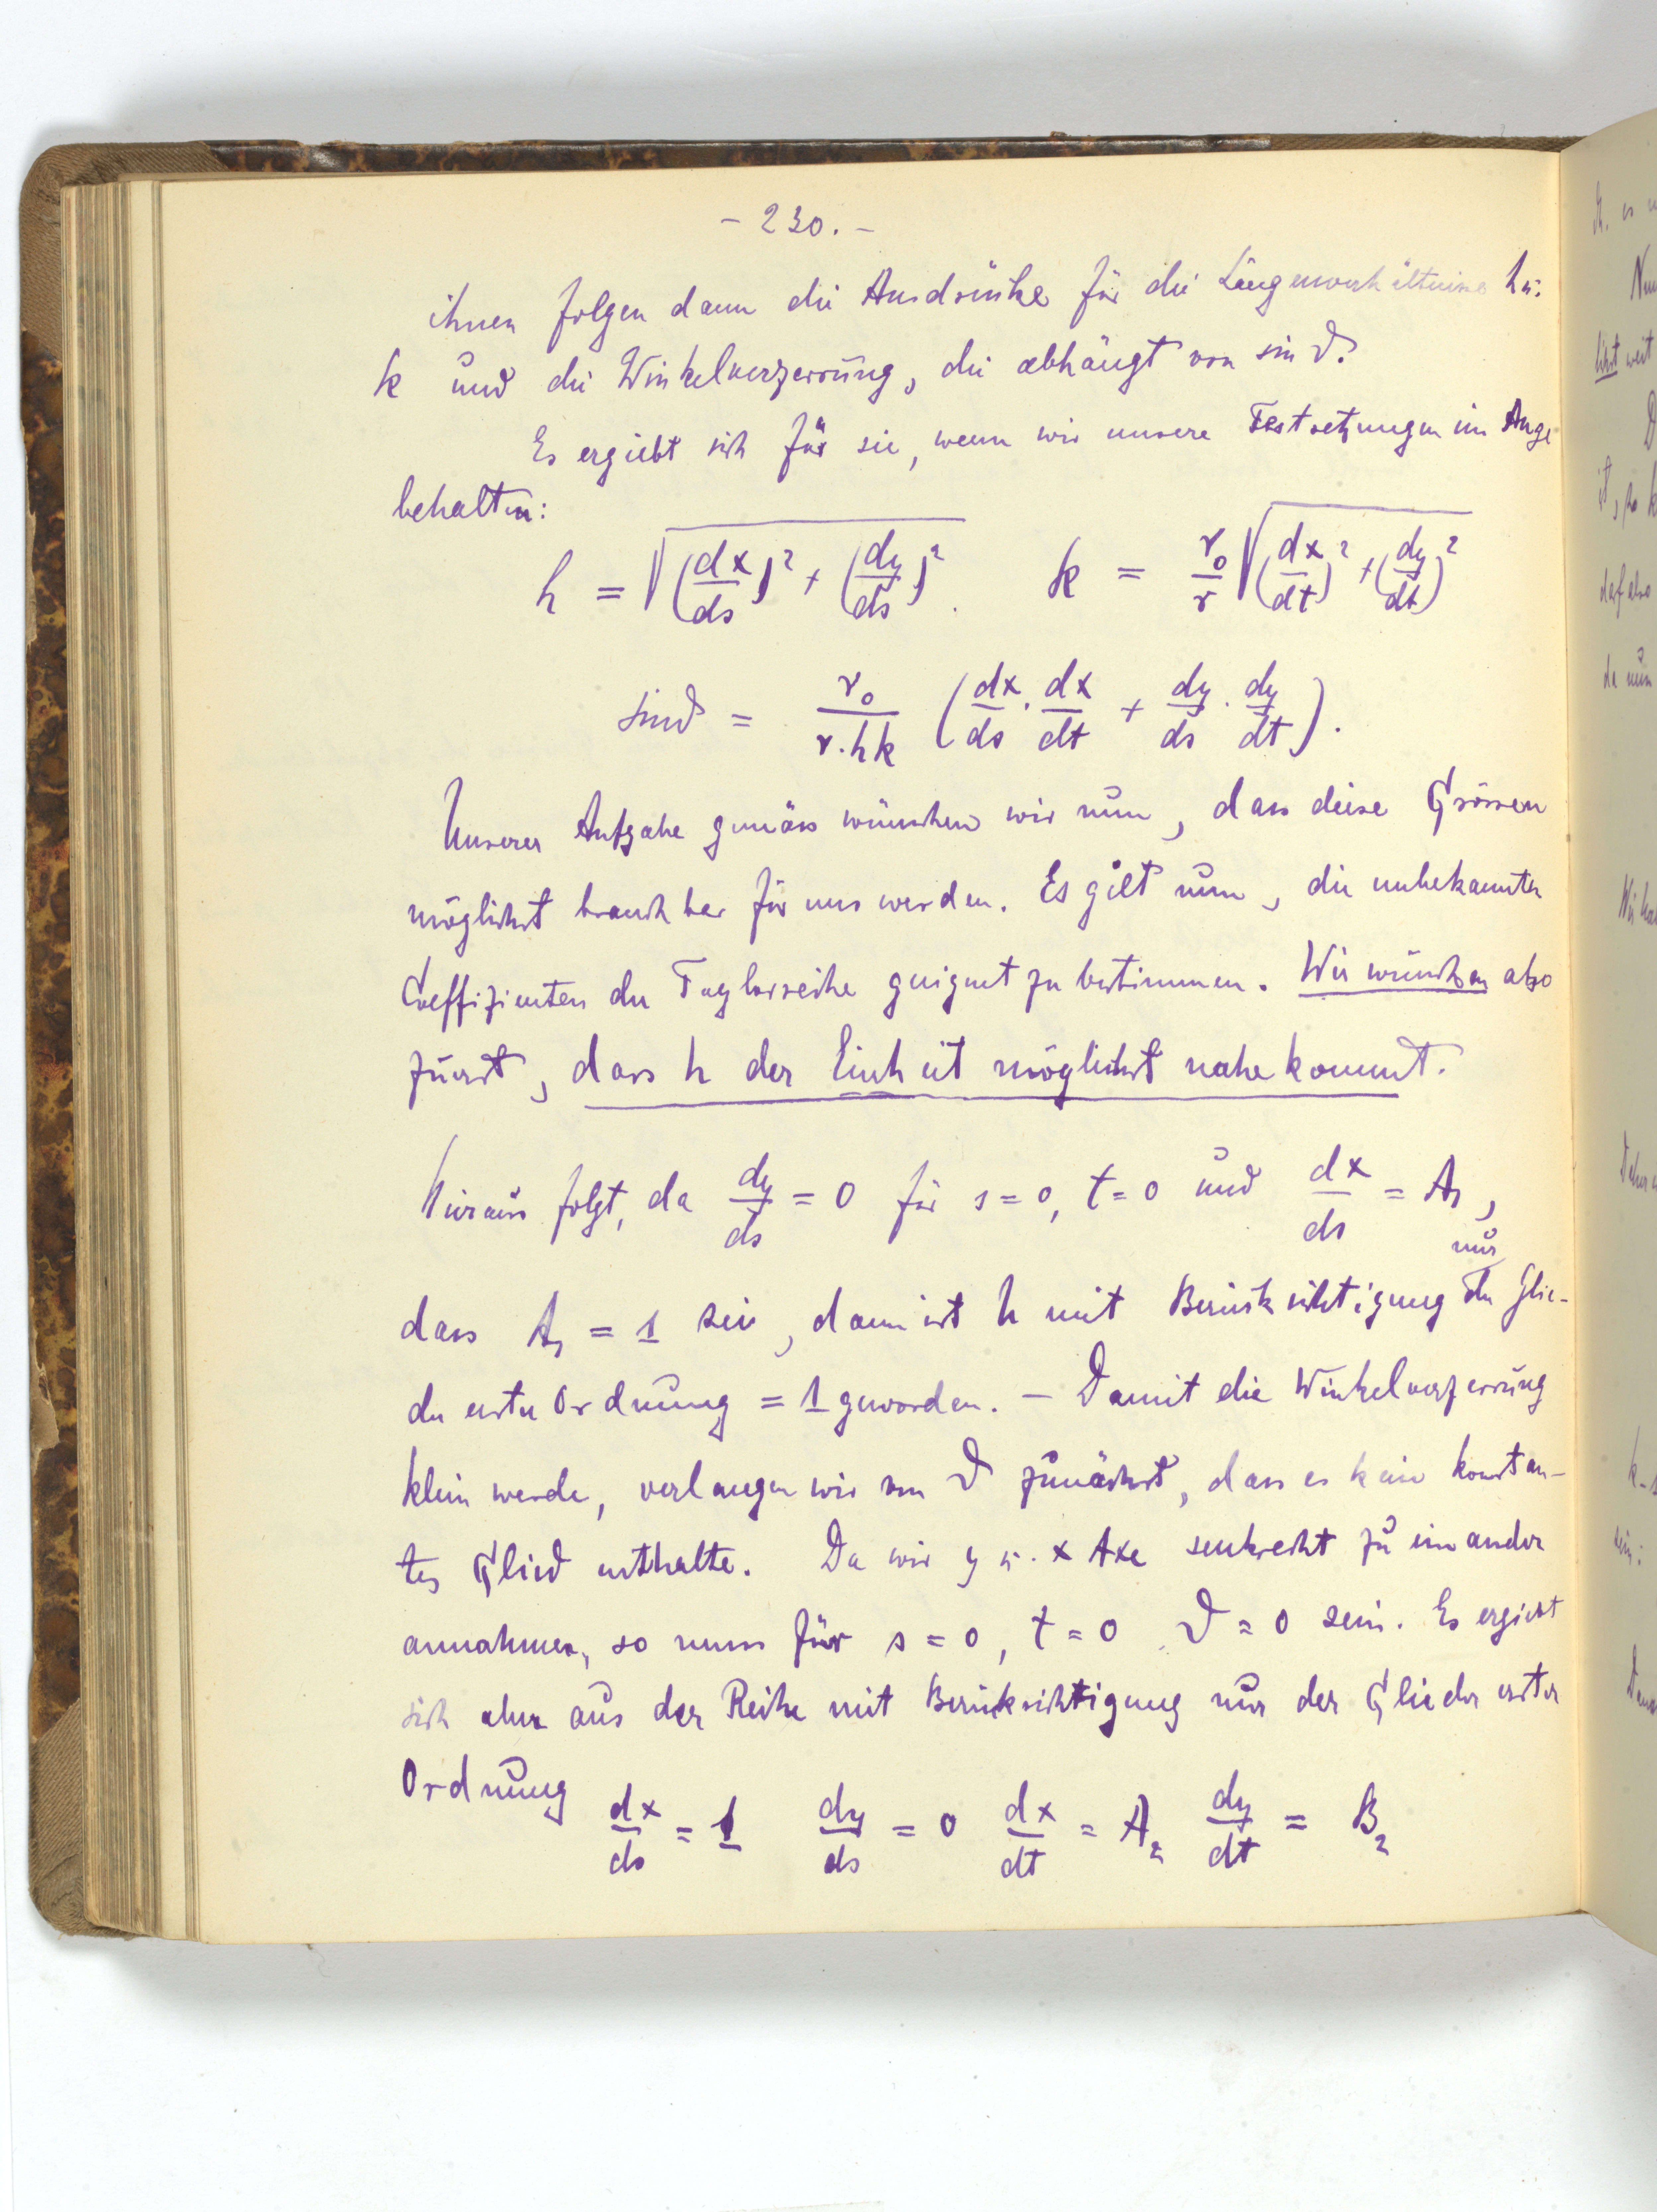 - 230. -
ihnen folgen dann die Ausdrücke für die Längenverhältnisse h u.
k und die Winkelverzerrung, die abhängt von sin ϑ.
Es ergiebt sich für sie, wenn wir unsere Festsetzungen im Auge
behalten:
h = √((dx/ds)² + (dy/ds)²). k = r₀/r √((dx/dt)² + (dy/dt)²)
sin ϑ = r₀/(r·hk) (dx/ds · dx/dt + dy/ds · dy/dt).
Unserer Aufgabe gemäss wünschen wir nun, dass diese Grössen
möglichst brauchbar für uns werden. Es gilt nun, die unbekannten
Coeffizienten der Taylorreihe geeignet zu bestimmen. Wir wünschen also
zuerst, dass h der Einheit möglichst nahe kommt.
Hieraus folgt, da dy/ds = 0 für s = 0, t = 0 und dx/ds = A₁,
nur
dass A₁ = 1 sei, dann ist h mit Berücksichtigung der Glie-
der erster Ordnung = 1 geworden. - Damit die Winkelverzerrung
klein werde, verlangen wir von ϑ zunächst, dass es kein konstan-
tes Glied enthalte. Da wir y u. x Axe senkrecht zu einander
annahmen, so muss für s = 0, t = 0 ϑ = 0 sein. Es ergiebt
sich aber aus der Reihe mit Berücksichtigung nur der Glieder erster
Ordnung
dx/ds = 1 dy/ds = 0 dx/dt = A₂ dy/dt = B₂